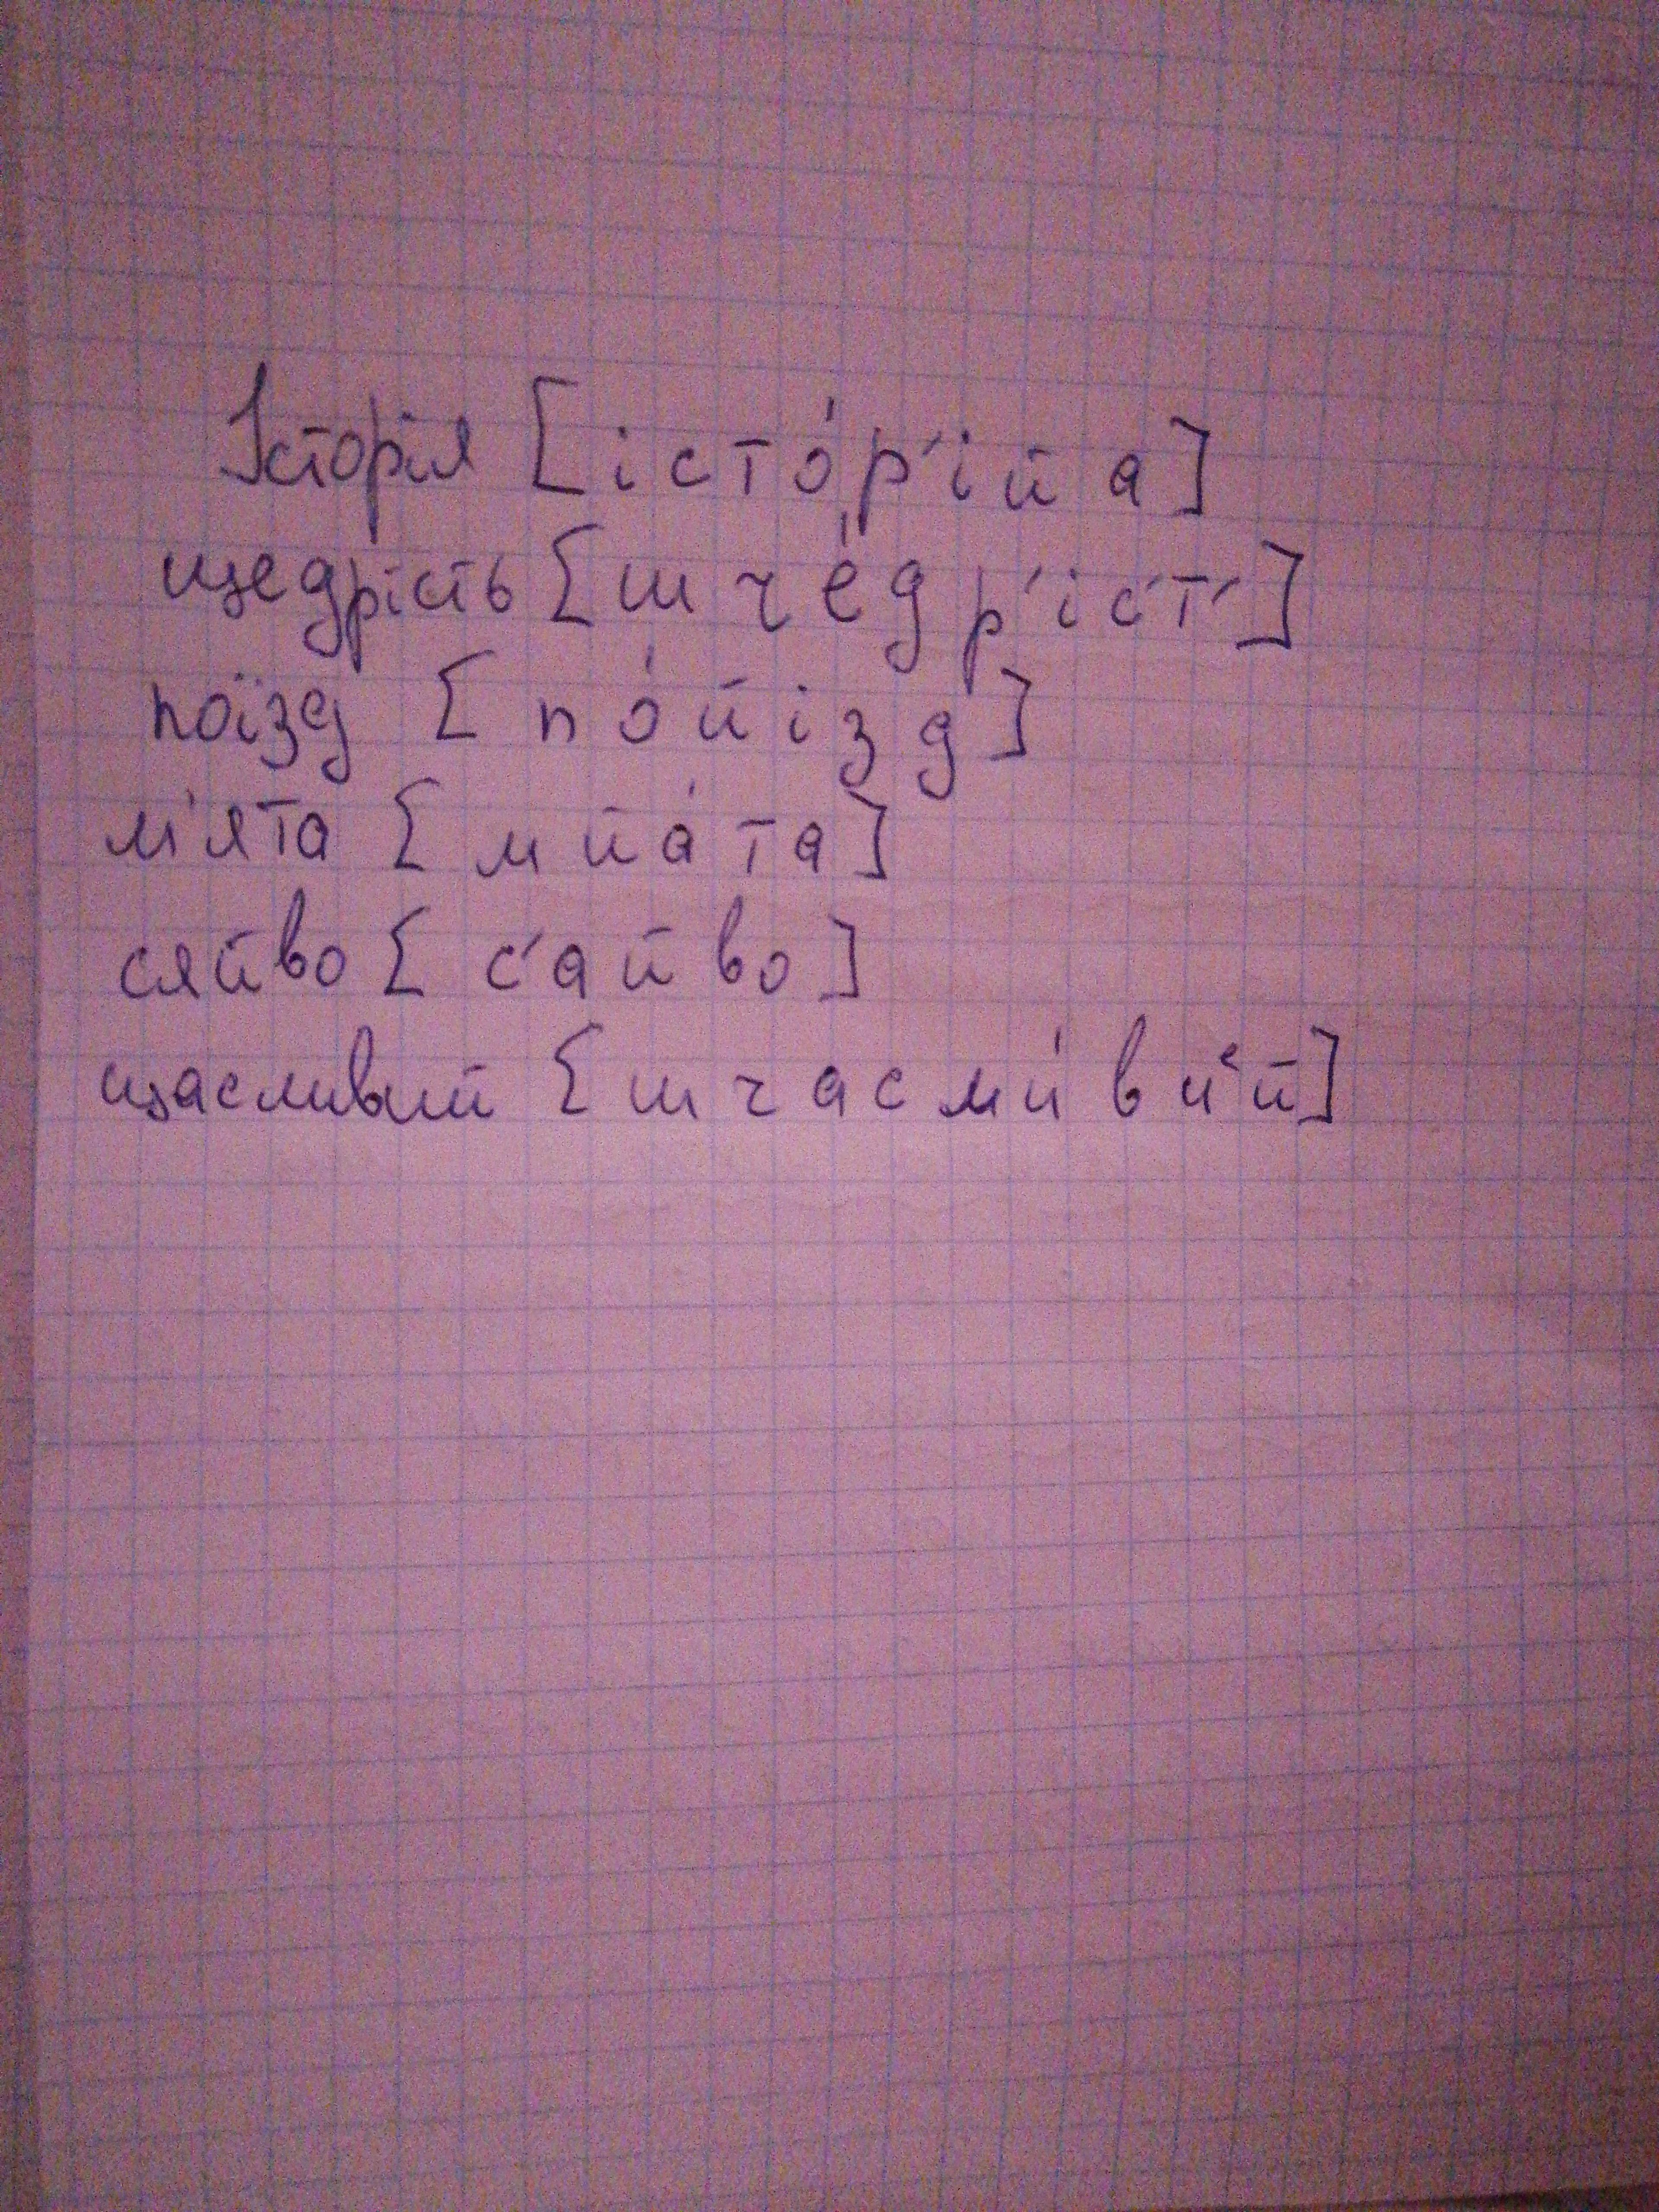 Історія [істо́р′ійа]
щедрість [шче́др′іс′т′]
поїзд [по́йізд]
м'ята [мйа́та]
сяйво [с′айво]
щасливий [шчасли́виᵉй]